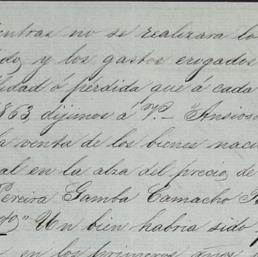 ientras no se realizara lo
do, y los gastos erogados
ilidad ó pérdida que á cada
1863, dijimos á V. — "Ansioso
la venta de los bienes naci
al en la alza del precio de
Pereira Gamba Camacho R
do" Un bien habria sido
en los primeros años